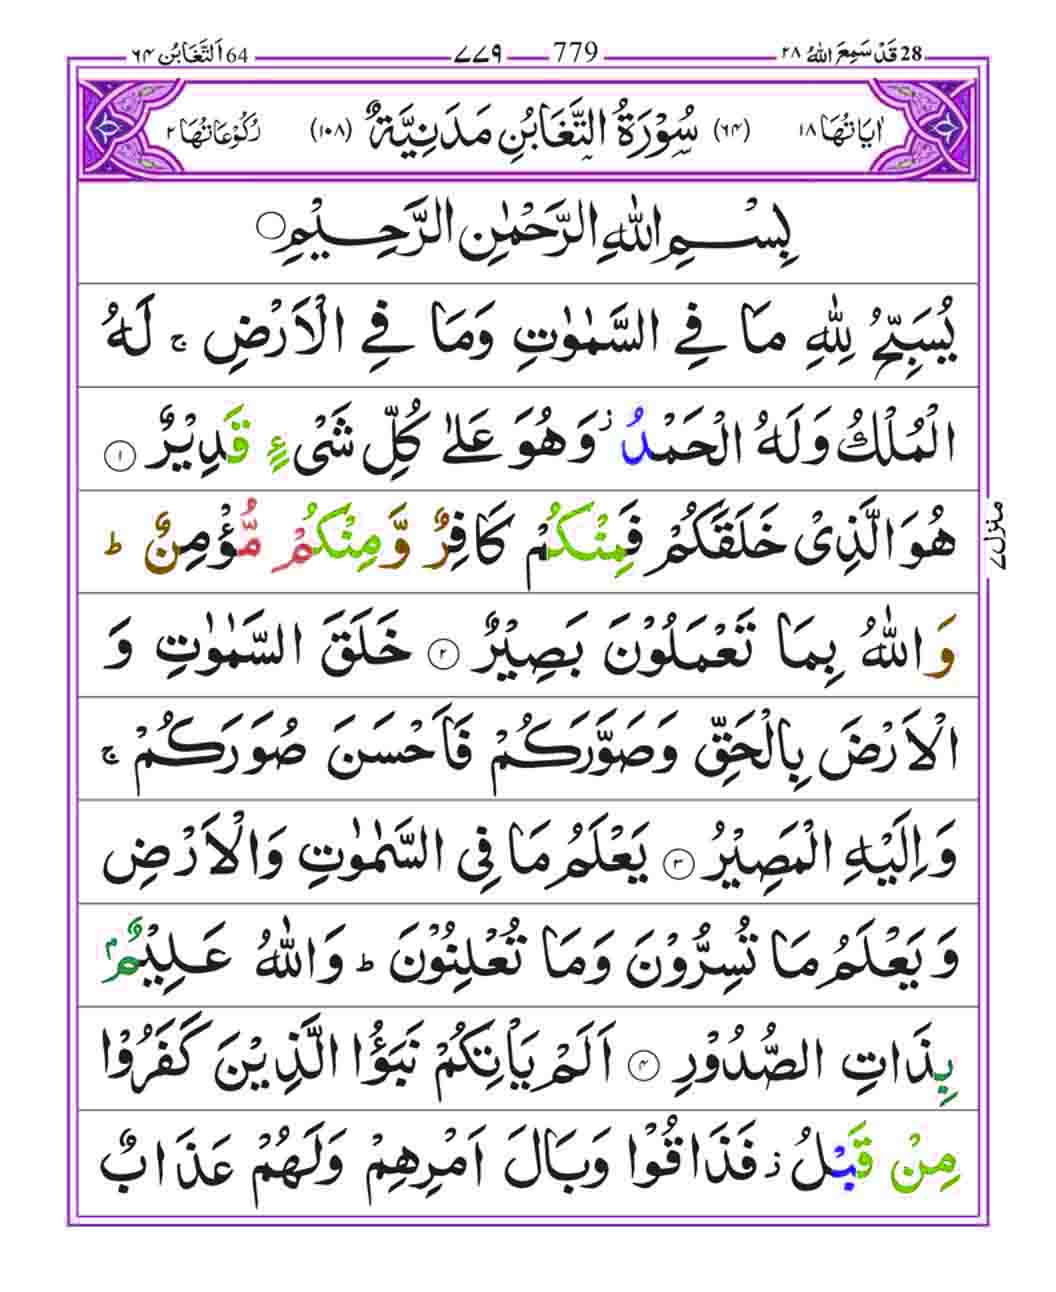 28 قَدْ سَمِعَ اللهُ ٢٨ 779 ٧٧٩ 64 اَلتَّغَابُن ٦٤
اٰيَاتُهَا ١٨ (٦٤) سُوْرَةُ التَّغَابُنِ مَدَنِيَّةٌ (١٠٨) رُكُوْعَاتُهَا ٢
بِسْمِ اللهِ الرَّحْمٰنِ الرَّحِيْمِ ۝
يُسَبِّحُ لِلّٰهِ مَا فِي السَّمٰوٰتِ وَمَا فِي الْاَرْضِ ۚ لَهُ
الْمُلْكُ وَلَهُ الْحَمْدُ ؗ وَهُوَ عَلٰى كُلِّ شَىْءٍ قَدِيْرٌ ١
هُوَ الَّذِىْ خَلَقَكُمْ فَمِنْكُمْ كَافِرٌ وَّمِنْكُمْ مُّؤْمِنٌ ؕ
وَاللهُ بِمَا تَعْمَلُوْنَ بَصِيْرٌ ٢ خَلَقَ السَّمٰوٰتِ وَ
الْاَرْضَ بِالْحَقِّ وَصَوَّرَكُمْ فَاَحْسَنَ صُوَرَكُمْ ۚ
وَاِلَيْهِ الْمَصِيْرُ ٣ يَعْلَمُ مَا فِى السَّمٰوٰتِ وَالْاَرْضِ
وَيَعْلَمُ مَا تُسِرُّوْنَ وَمَا تُعْلِنُوْنَ ؕ وَاللهُ عَلِيْمٌۢ
بِذَاتِ الصُّدُوْرِ ٤ اَلَمْ يَاْتِكُمْ نَبَؤُا الَّذِيْنَ كَفَرُوْا
مِنْ قَبْلُ ؗ فَذَاقُوْا وَبَالَ اَمْرِهِمْ وَلَهُمْ عَذَابٌ
منزل ٧